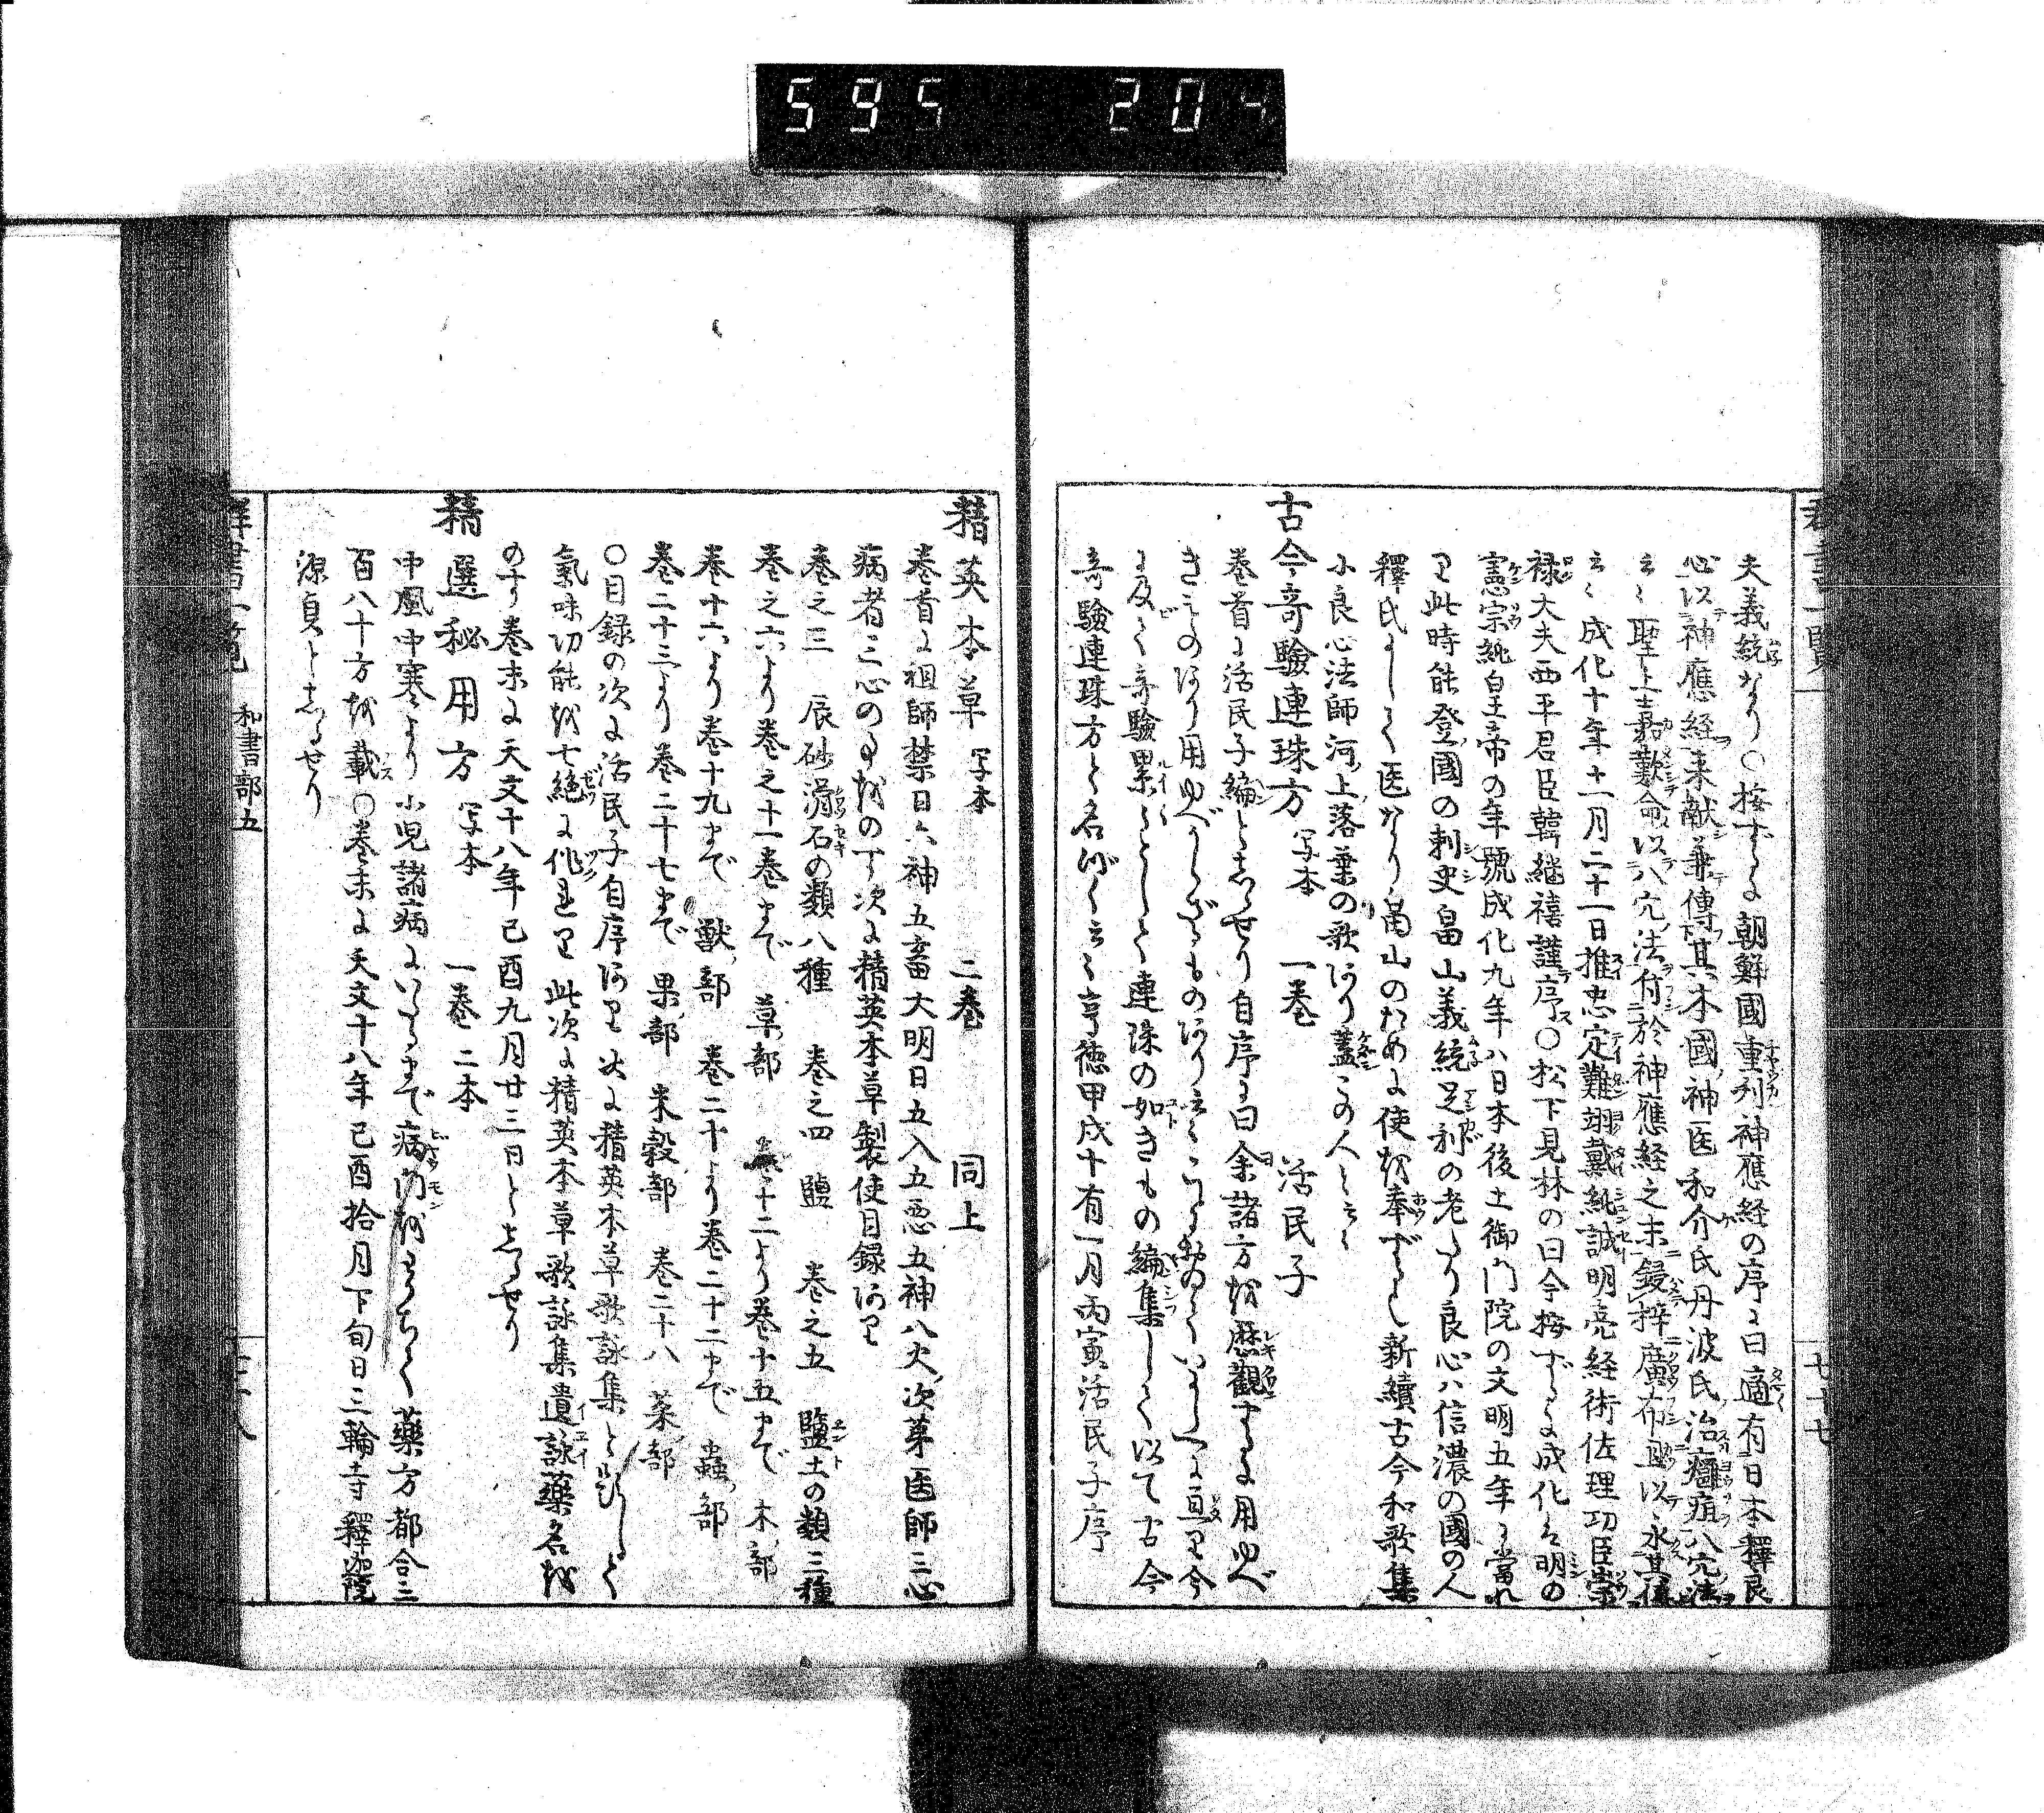 595 204
夫義統なり○按ずるに朝鮮國重刋神應経の序に曰適有日本釋良
心以神應経来献兼傳其本國神医和介氏丹波氏治癰疽八穴法
云々聖上嘉歎命以八穴法付於神應経之末鋟梓廣布且以永其傳
云々成化十年十一月二十一日推忠定難翊戴純誠明亮経術佐理功臣崇
禄大夫西平君臣韓継禧謹序○松下見林の曰今按ずるに成化は明の
憲宗純皇帝の年號成化九年八日本後土御門院の文明五年に當れ
り此時能登國の刺史畠山義統足利の老たり良心八信濃の國の人
釋氏にして医なり畠山のために使を奉ずらし新續古今和歌集
に良心法師河上落葉の歌あり蓋この人と云々
古今奇驗連珠方 写本 一巻 活民子
巻首に活民子編としるせり自序に曰余諸方を歴觀するに用ゆべ
きものあり用ゆべからざるものあり云々
に及て奇驗累々として連珠の如きもの編集して以て古今
奇驗連珠方と名づく云々享徳甲戌十有一月丙寅活民子序
精英本草 写本 二巻 同上
巻首に祖師禁日六神五畜大明日五入五悪五神八火次第医師三心
病者三心の事をのす次に精英本草製使目録あり
巻之三 辰砂滑石の類八種 巻之四 鹽 巻之五 鹽土の類三種
巻之六より巻之十一巻まで 草部 巻十二より巻十五まで 木部
巻十六より巻十九まで 獣部 巻二十より巻二十二まで 蟲部
巻二十三より巻二十七まで 果部 米穀部 巻二十八 菜部
○目録の次に活民子自序あり次に精英本草歌詠集と題して
氣味功能を七絶に作れり此次に精英本草歌詠集遺詠藥名を
のす巻末に天文十八年己酉九月廿三日としるせり
精選秘用方 写本 一巻 二本
中風中寒より小児諸病にいたるまで病門をわかちて藥方都合三
百八十方を載○巻末に天文十八年己酉拾月下旬日三輪寺釋迦院
源貞としるせり
群書一覧 和書部五